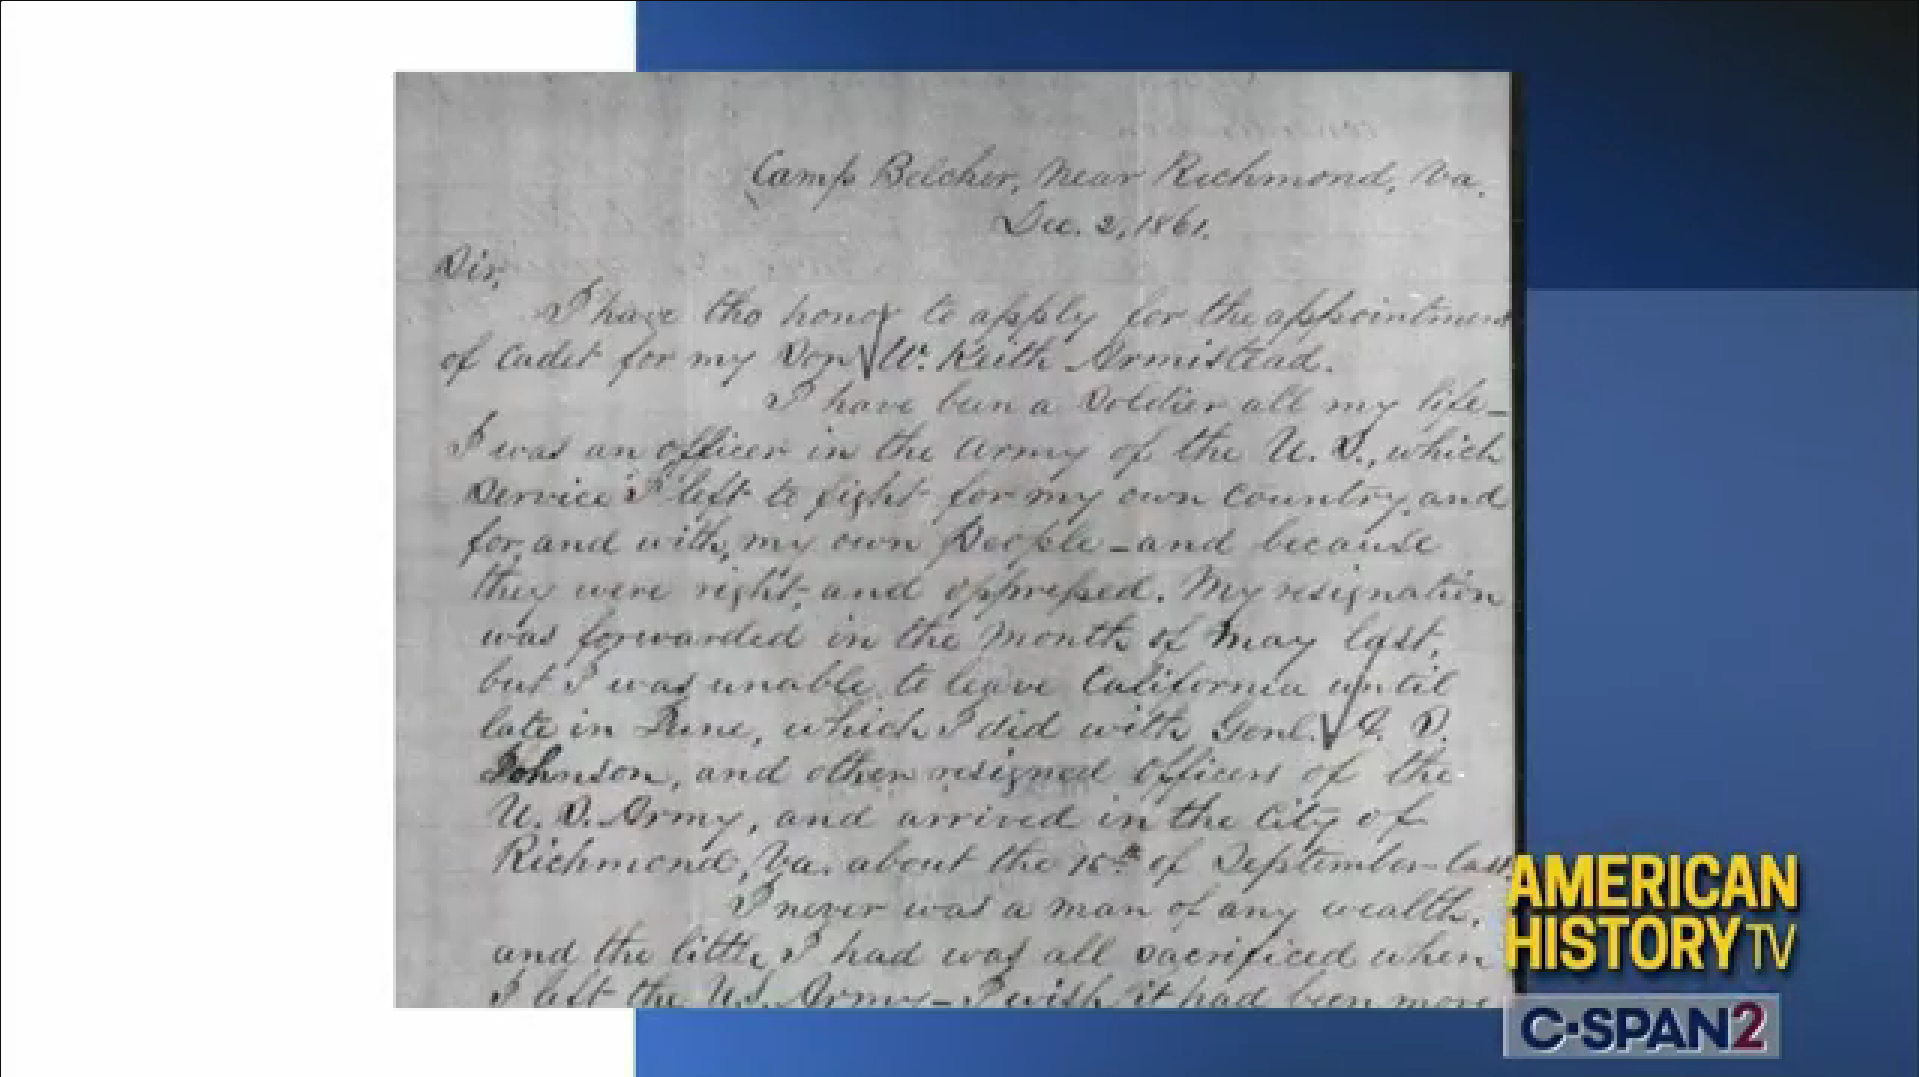 Camp Belcher, Near Richmond, Va.
Dec. 2, 1861.
Sir,
I have the honor to apply for the appointment
of Cadet for my Son W. Keith Armistead.
I have been a Soldier all my life –
I was an officer in the Army of the U. S., which
Service I left to fight for my own Country, and
for, and with, my own People – and because
they were right, and oppressed. My resignation
was forwarded in the month of May last,
but I was unable to leave California until
late in June, which I did with Genl. A. S.
Johnson, and other resigned officers of the
U. S. Army, and arrived in the City of
Richmond, Va. about the 15th of September last.
I never was a man of any wealth,
and the little I had was all sacrificed when
I left the U.S. Army – I wish it had been more
AMERICAN
HISTORY TV
C-SPAN2